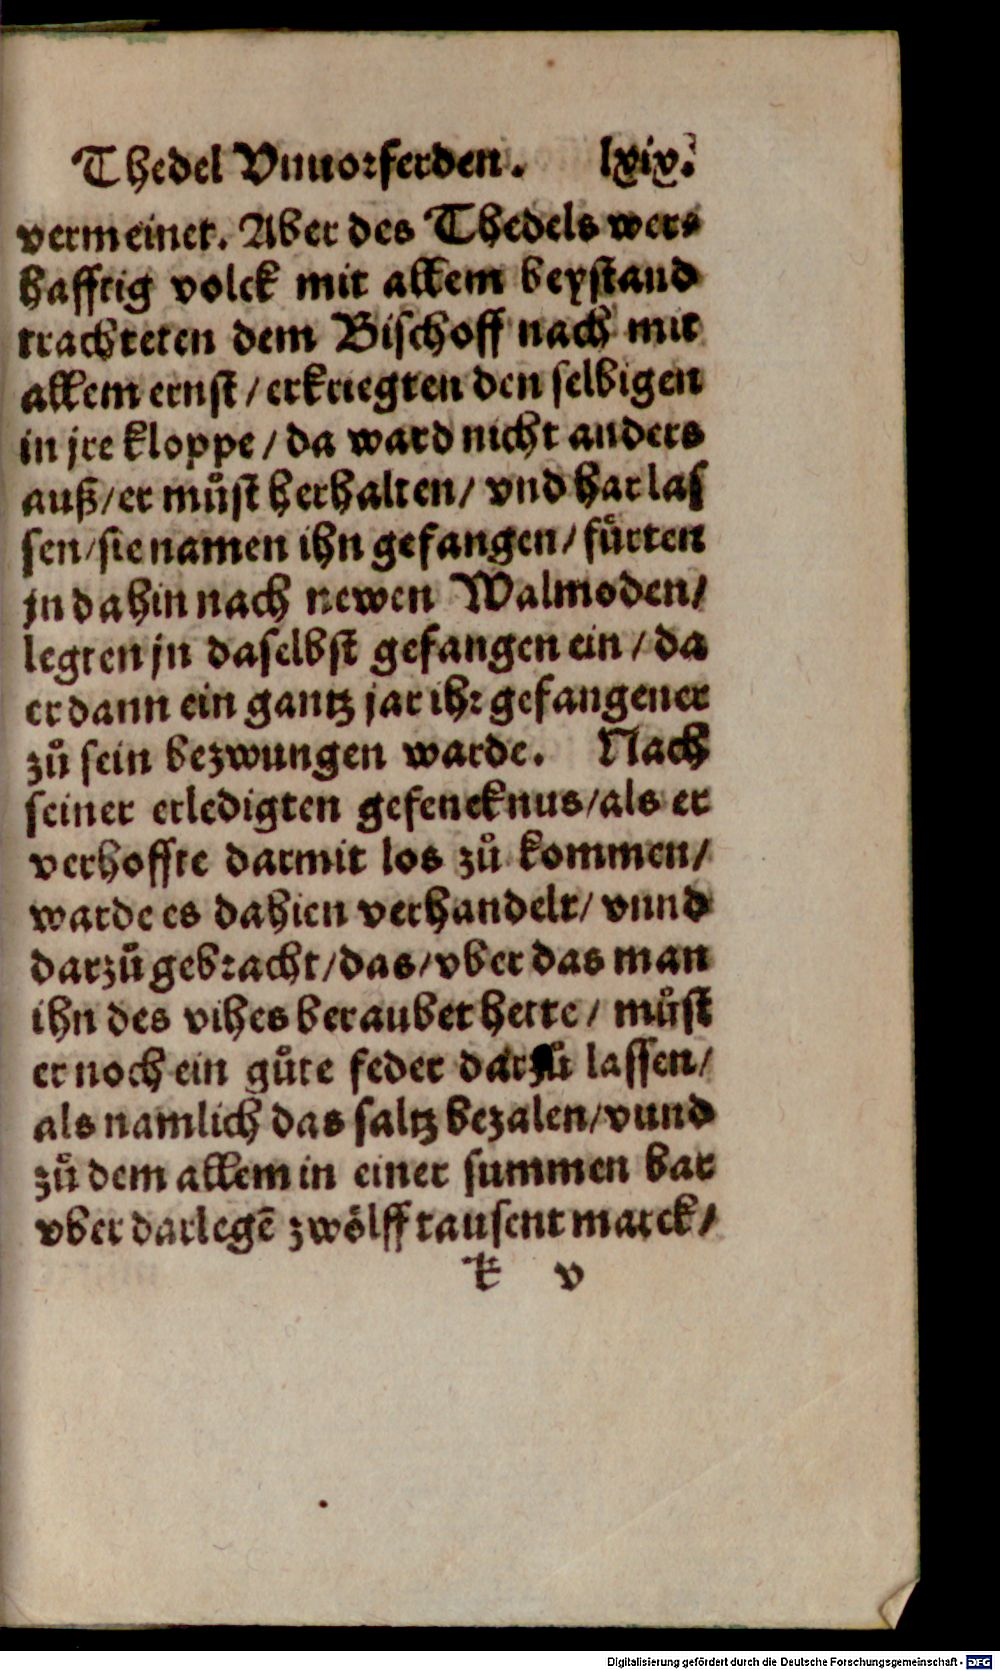 Thedel Vnuorferden. lxix.
vermeinet. Aber des Thedels wer⸗
hafftig volck mit allem beystand
trachteten dem Bischoff nach mit
allem ernst / erkriegten den selbigen
in jre kloppe / da ward nicht anders
auß / er můst herhalten / vnd har las
sen / sie namen ihn gefangen / fůrten
jn dahin nach newen Walmoden /
legten jn daselbst gefangen ein / da
er dann ein gantz jar ihr gefangener
zů sein bezwungen warde. Nach
seiner erledigten gefencknus / als er
verhoffte darmit los zů kommen /
warde es dahien verhandelt / vnnd
darzů gebracht / das / vber das man
ihn des vihes beraubet hette / můst
er noch ein gůte feder darzů lassen /
als namlich das saltz bezalen / vnnd
zů dem allem in einer summen bar
vber darlegē zwölff tausent marck /
k v
Digitalisierung gefördert durch die Deutsche Forschungsgemeinschaft - DFG